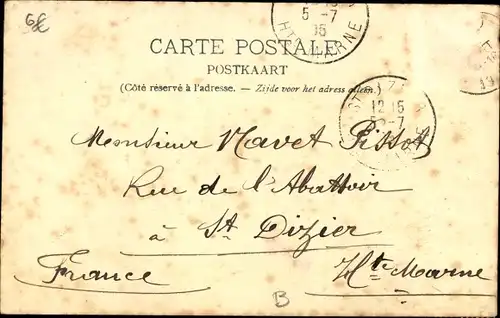 6€
5-7
05
HTE MARNE
CARTE POSTALE
POSTKAART
(Côté réservé à l'adresse. — Zijde voor het adress alleen.)
12 15
5-7
Monsieur Navet Pissot
Rue de l'Abattoir
à St Dizier
France Hte Marne
B